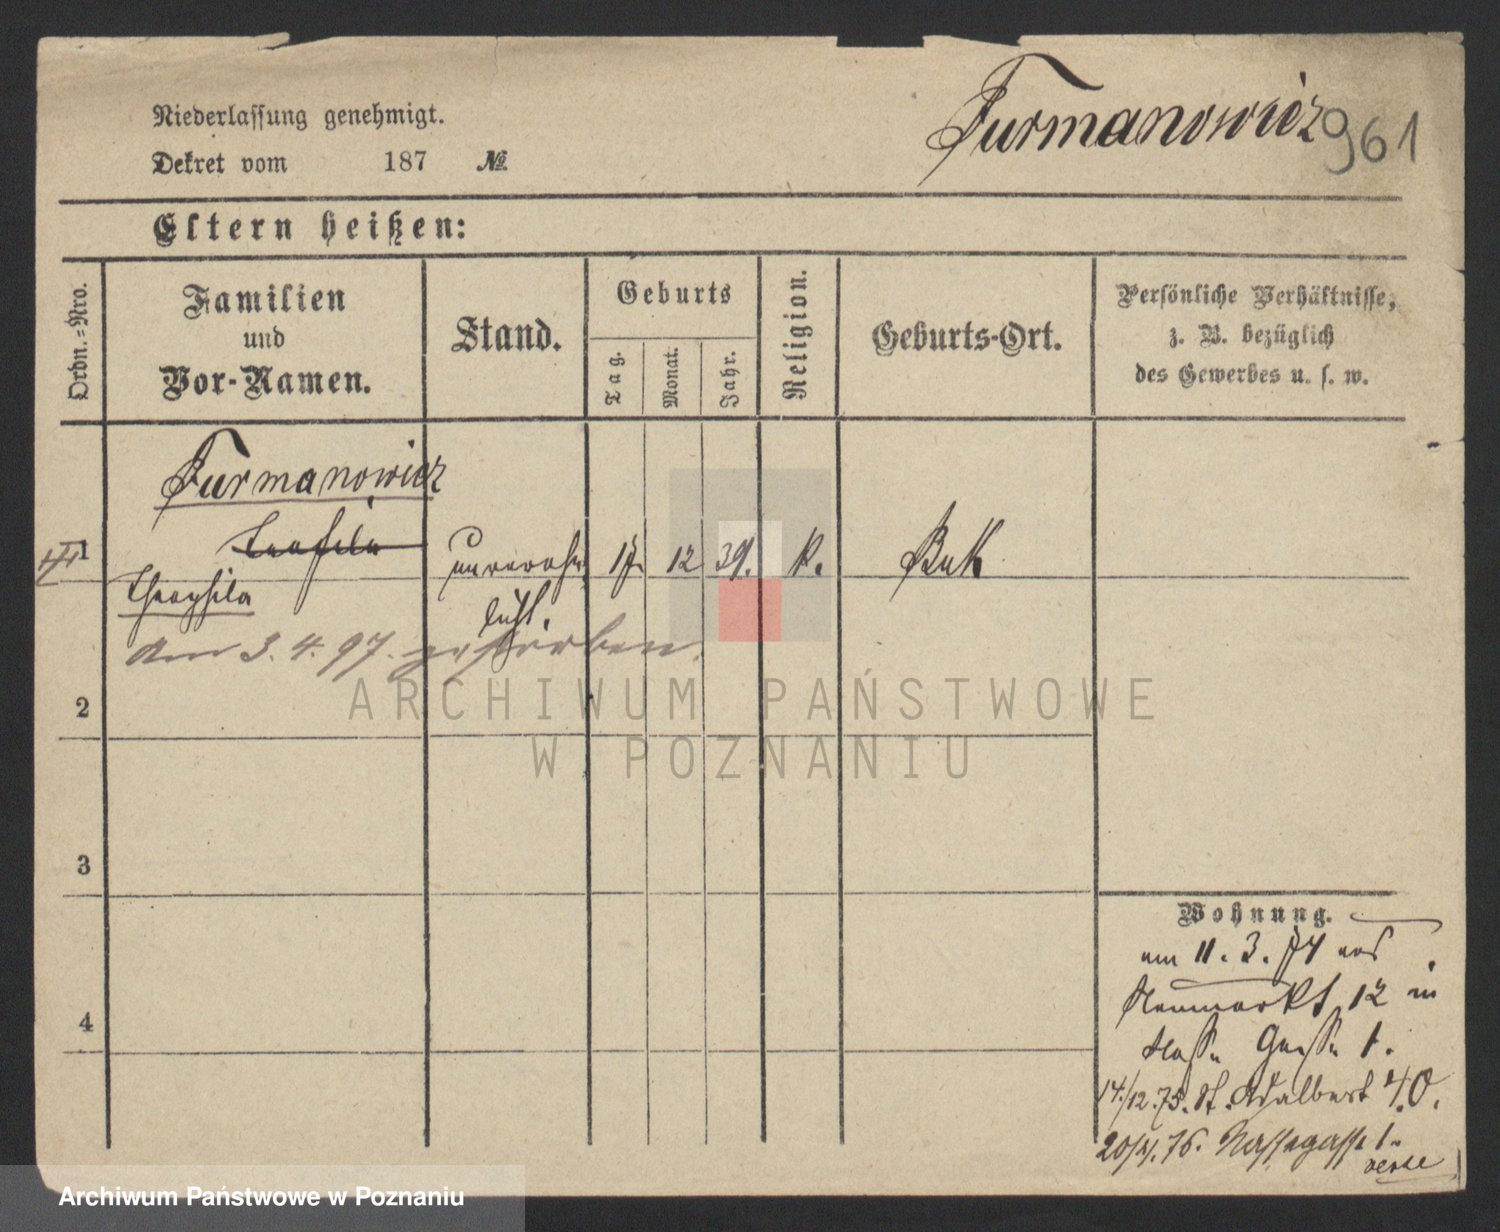 Niederlassung genehmigt.
Dekret vom 187 №
Furmanowicz
961
Eltern heißen:
Ordn.-Nro.
Familien
und
Vor-Namen.
Stand.
Geburts
Tag.
Monat.
Jahr.
Religion.
Geburts-Ort.
Persönliche Verhältnisse,
z. B. bezüglich
des Gewerbes u. s. w.
Furmanowicz
1 Teofila unverehe 17. 12 39. k. Buk
Theophila licht.
am 3. 4. 97. gestorben.
2
3
4
Wohnung.
am 11. 3. 74 von
Neumarkt 12 in
Nasse Gasse 1.
14/12.75. St. Adalbert 40.
20/4.76. Nassegasse 1.
verte
ARCHIWUM PAŃSTWOWE
W POZNANIU
Archiwum Państwowe w Poznaniu